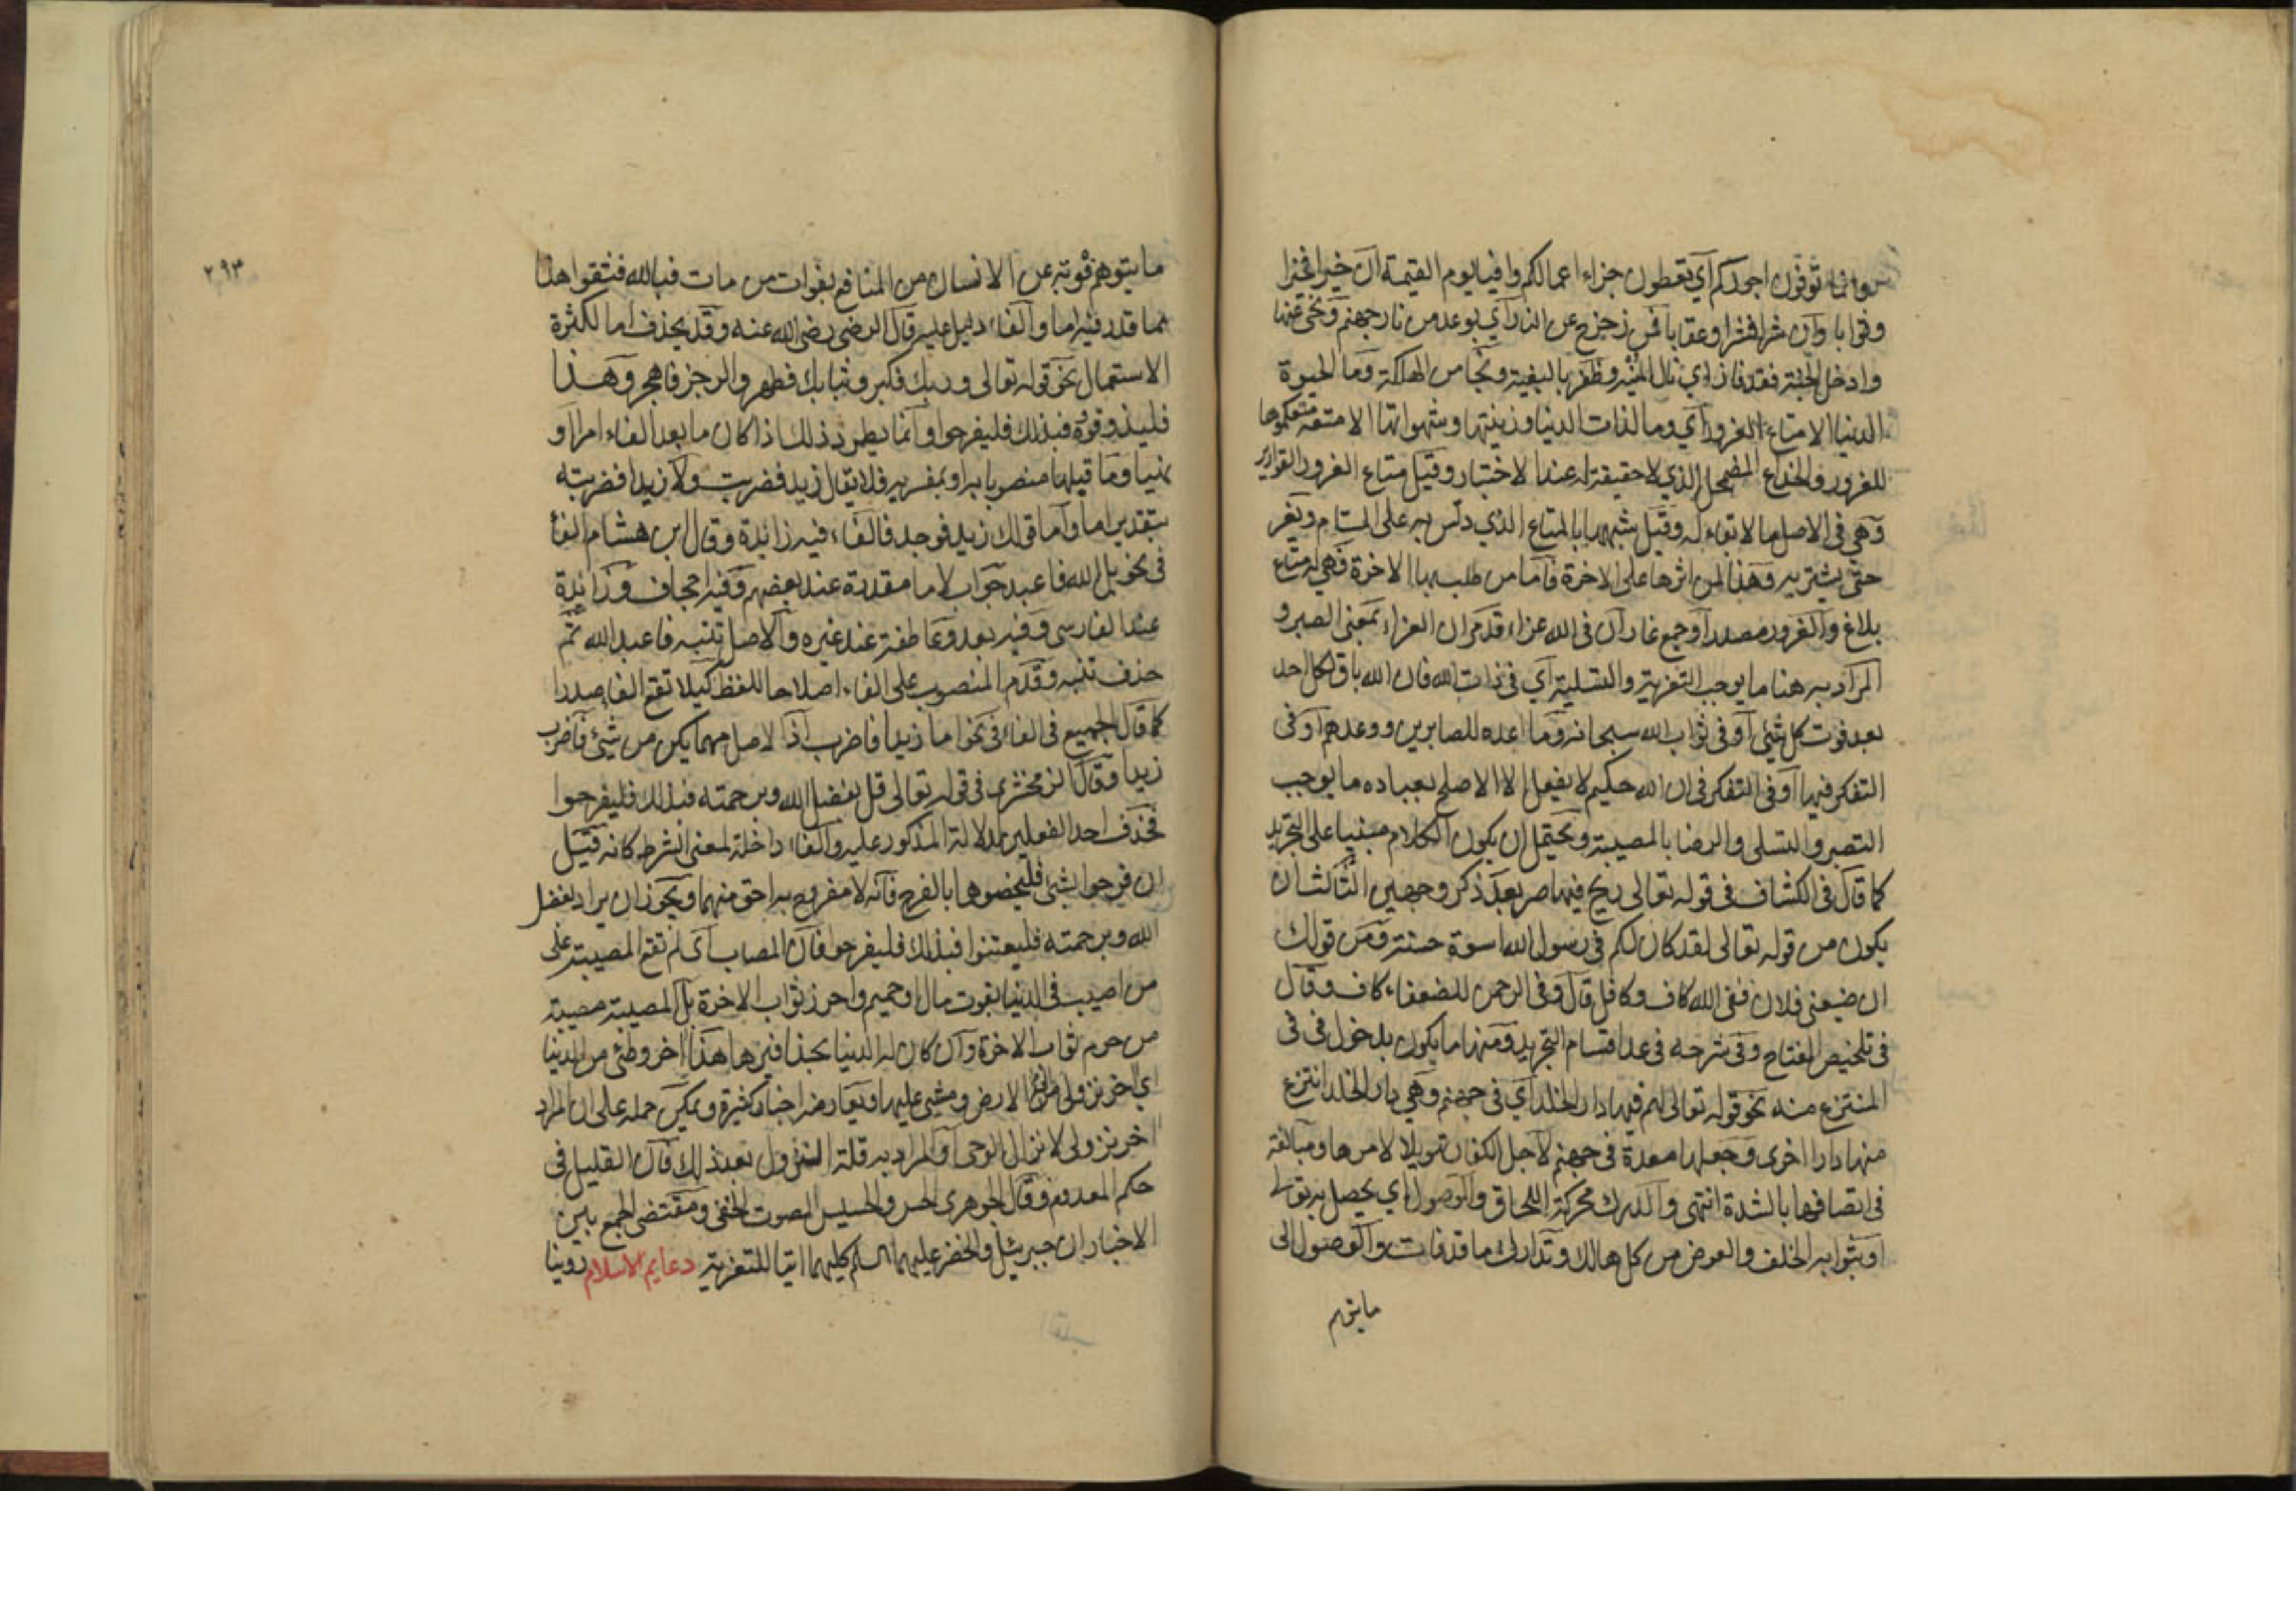 وانما توفون اجوركم اي تعطون جزاء اعمالكم وافيا يوم القيمة ان خيرا فخيرا
وثوابا وان شرا فشرا وعقابا فمن زحزح عن النار اي بوعد من نار جهنم ونحي عنها
وادخل الجنة فقد فاز اي نال المنية وظفر بالبغية ونجا من الهلكة وما الحيوة
الدنيا الا متاع الغرور اي وما لذات الدنيا وزينتها وشهواتها الا متعة متعكموها
للغرور والخداع المضمحل الذي لا حقيقة له عند الاختبار وقيل متاع الغرور القوارير
وهي في الاصل ما لا بقاء له وقيل شبهها بالمتاع الذي دلس به على المستام ويغر
حتى يشتريه وهذا لمن اثرها على الاخرة فاما من طلب بها الاخرة فهي له متاع
بلاغ والغرور مصدر او جمع غار ان في الله عزاء قد مر ان العزاء بمعنى الصبر و
المراد به هنا ما يوجب التعزية والتسلية اي في ذات الله فان الله باق لكل احد
بعد فوت كل شئ او في ثواب الله سبحانه وما اعده للصابرين ووعدهم او في
التفكر فيها او في التفكر في ان الله حكيم لا يفعل الا الاصلح بعباده ما يوجب
التصبر والتسلي والرضا بالمصيبة ويحتمل ان يكون الكلام مبنيا على التجريد
كما قال في الكشاف في قوله تعالى ريح فيها صر بعد ذكر وجهين الثالث ان
يكون من قوله تعالى لقد كان لكم في رسول الله اسوة حسنة ومن قولك
ان ضيعني فلان ففي الله كاف وكافل قال وفي الرحمن للضعفاء كاف وقال
في تلخيص المفتاح وفي شرحه في عد اقسام التجريد ومنها ما يكون بدخول في في
المنتزع منه نحو قوله تعالى لهم فيها دار الخلد اي في جهنم وهي دار الخلد انتزع
منها دارا اخرى وجعلها معدة في جهنم لاجل الكفار تهويلا لامرها ومبالغة
في اتصافها بالشدة انتهى والدرك محركة اللحاق والوصول اي يحصل به تعالى
او بثوابه الخلف والعوض من كل هالك وتدارك ما قد فات والوصول الى
ما يتوهم
٢٩٣
ما يتوهم فوته عن الانسان من المنافع بفوات من مات فبالله فثقوا هذا
مما قدر فيه اما والفاء دليل عليه قال الرضي رضي الله عنه وقد يحذف اما لكثرة
الاستعمال نحو قوله تعالى وربك فكبر وثيابك فطهر والرجز فاهجر وهذا
فليذوقوه فبذلك فليفرحوا وانما يطرد ذلك اذا كان ما بعد الفاء امرا او
نهيا وما قبلها منصوبا به او بمفسر به فلا يقال زيد فضربت ولا زيدا فضربته
بتقدير اما واما قولك زيد فوجد فالفاء فيه زائدة وقال ابن هشام الفاء
في نحو بل الله فاعبد جواب لاما مقدرة عند بعضهم وفيه اجحاف وزائدة
عند الفارسي وفيه بعد وعاطفة عند غيره والاصل تنبه فاعبد الله ثم
حذف تنبه وقدم المنصوب على الفاء اصلاحا للفظ كيلا تقع الفاء صدرا
كما قال الجميع في الفاء في نحو اما زيدا فاضرب اذ الاصل مهما يكن من شئ فاضرب
زيدا وقال الزمخشري في قوله تعالى قل بفضل الله وبرحمته فبذلك فليفرحوا
فحذف احد الفعلين لدلالة المذكور عليه والفاء داخلة لمعنى الشرط كانه قيل
ان فرحوا بشئ فليخصوهما بالفرح فانه لا مفروح به احق منهما ويجوز ان يراد بفضل
الله وبرحمته فليعتنوا فبذلك فليفرحوا فان المصاب اي لم تقع المصيبة على
من اصيب في الدنيا بفوت مال او حميم واحرز ثواب الاخرة بل المصيبة مصيبة
من حرم ثواب الاخرة وان كان له الدنيا بحذافيرها هذا اخر وطئي من الدنيا
اي اخر نزولي الى الارض ومشيي عليها ويعارضه اخبار كثيرة ويمكن حمله على ان المراد
اخر نزولي لانزال الوحي او المراد به قلة النزول بعد ذلك فان القليل في
حكم المعدوم وقال الجوهري الحس والحسيس الصوت الخفي ومقتضى الجمع بين
الاخبار ان جبرئيل والخضر عليهما السلم كليهما اتيا للتعزية دعايم الاسلام روينا